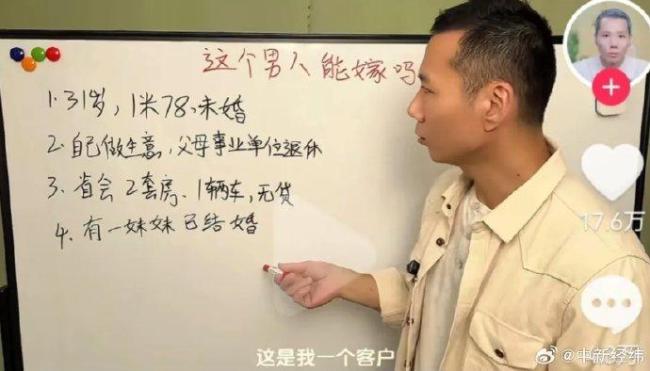 这个男人能嫁吗
1.31岁,1米78、未婚
2.自己做生意,父母事业单位退休
3.省会2套房、1辆车,无贷
4.有一妹妹已结婚
17.6万
这是我一个客户
@中新经纬